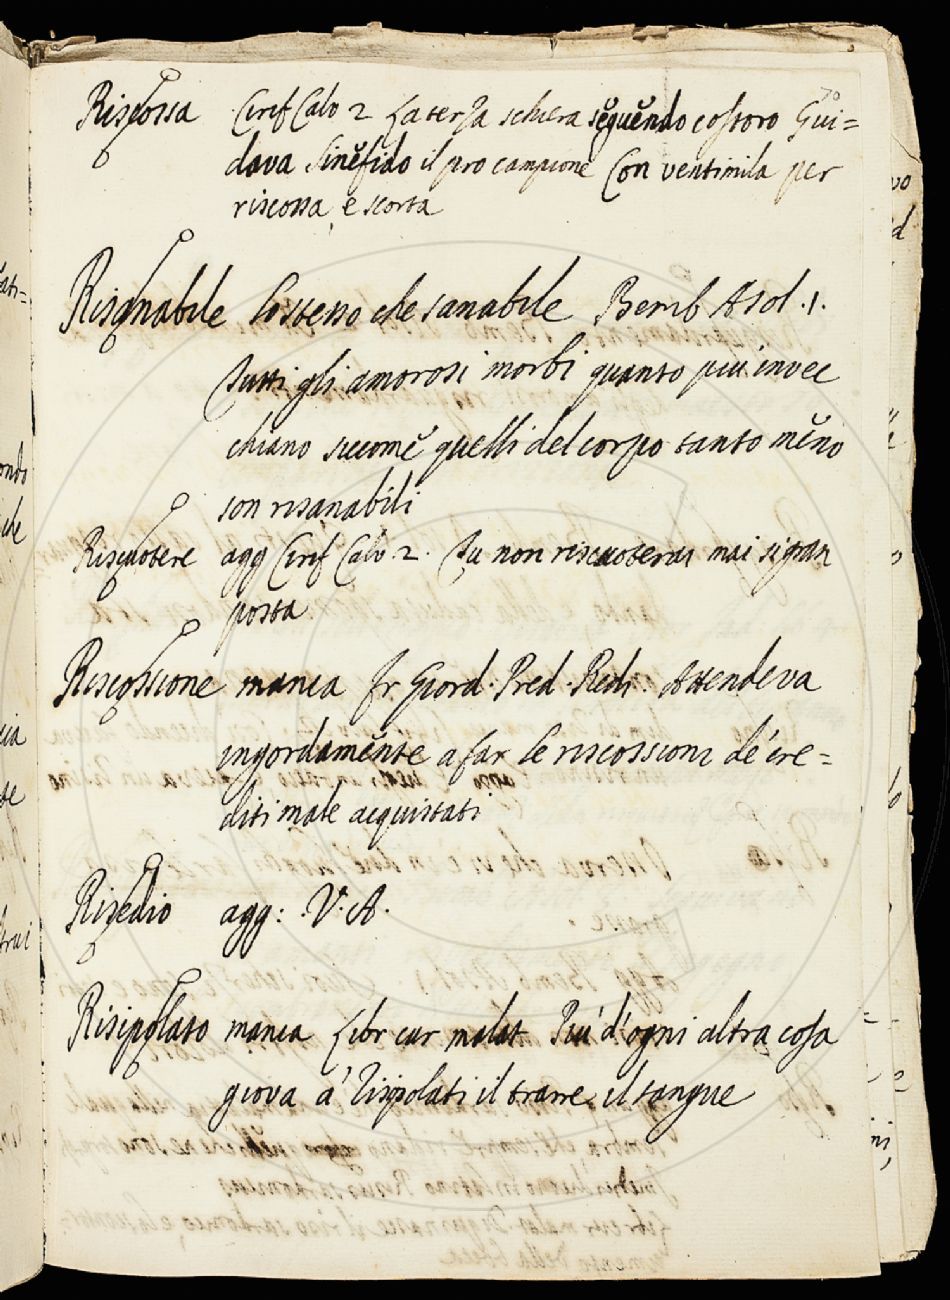 70
Riscossa Cirif Calv 2 La terza schiera seguendo costoro Gui=
dava Sinefido il pro campione Con ventimila per
riscossa e scorta
Risanabile Lo stesso che sanabile Bemb Asol. 1.
Tutti gli amorosi morbi quanto piu invec
chiano siccome quelli del corpo tanto meno
son risanabili
Riscuotere agg Cirif Calv 2. Tu non riscuoterai mai si gran
posta
Riscossione manca Fr. Giord. Pred. Redi. Attendeva
ingordamente a far le riscossioni de' cre=
diti male acquistati
Risedio agg: V. A.
Risipolato manca Libr cur malat Più d'ogni altra cosa
giova a' risipolati il trarre il sangue